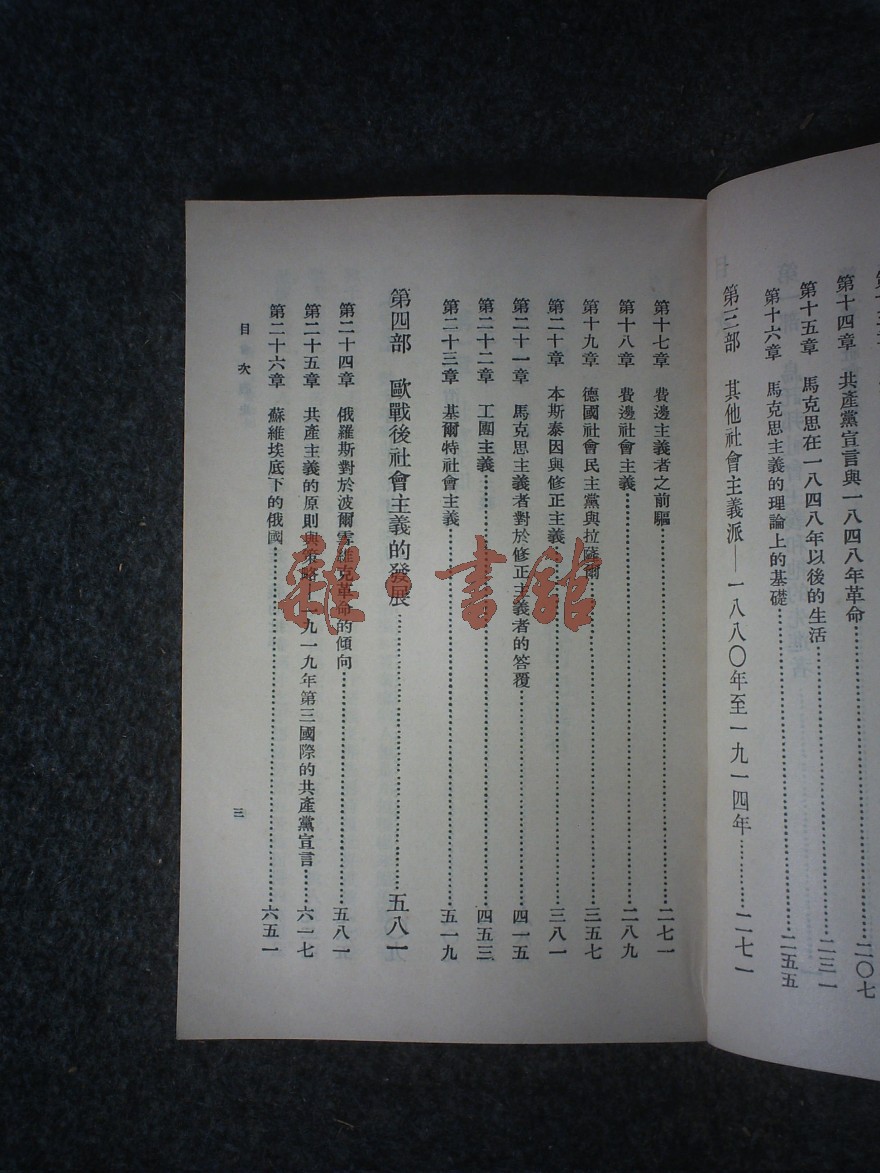 第十四章 共產黨宣言與一八四八年革命……二〇七
第十五章 馬克思在一八四八年以後的生活……二三一
第十六章 馬克思主義的理論上的基礎……二五五
第三部 其他社會主義派—一八八〇年至一九一四年……二七一
第十七章 費邊主義者之前驅……二七一
第十八章 費邊社會主義……二八九
第十九章 德國社會民主黨與拉薩爾……三五七
第二十章 本斯泰因與修正主義……三八一
第二十一章 馬克思主義者對於修正主義者的答覆……四一五
第二十二章 工團主義……四五三
第二十三章 基爾特社會主義……五一九
第四部 歐戰後社會主義的發展……五八一
第二十四章 俄羅斯對於波爾雪維克革命的傾向……五八一
第二十五章 共產主義的原則與策略—一九一九年第三國際的共產黨宣言……六一七
第二十六章 蘇維埃底下的俄國……六五一
目次
三
雜·書館